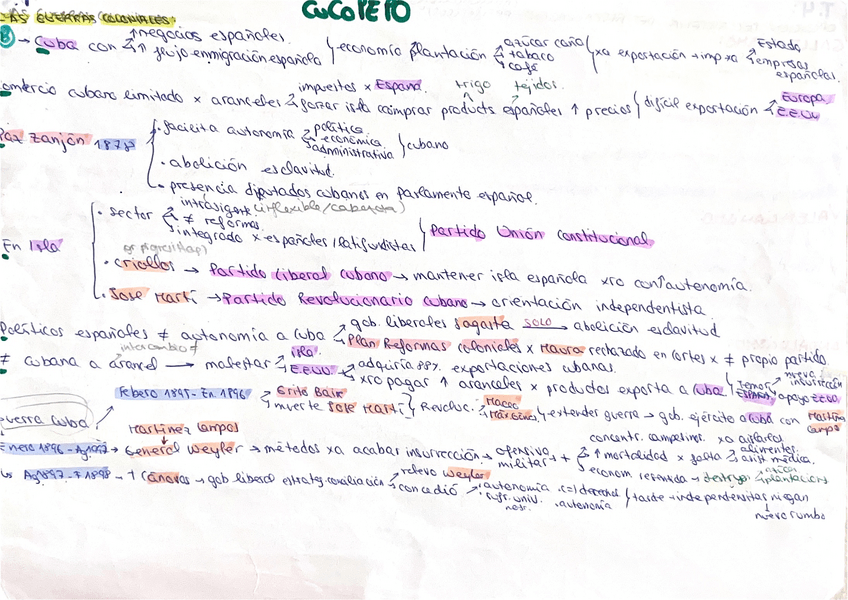 CUCOPEPO
LAS GUERRAS COLONIALES:
→ Cuba con ↑ negocios españoles. ↑ flujo enmigración española } economía plantación azúcar caña, tabaco, café } xa exportación + imp xa Estado, empresas españolas.
comercio cubano limitado x aranceles impuestos x España. forzar isla comprar products españoles trigo tejidos. ↑ precios } difícil exportación Europa, E.E.UU
Paz Zanjón 1878
· facilita autonomía política, económica, administrativa } cubano
· abolición esclavitud.
· presencia diputados cubanos en parlamento español.
En Isla
· sector intransigente (inflexible/cabezota) ≠ reformas. integrado x españoles/latifundistas } Partido Unión constitucional
· criollos → Partido Liberal cubano → mantener isla española xro con autonomía.
· José Martí → Partido Revolucionario cubano → orientación independentista.
Políticos españoles ≠ autonomía a Cuba gob. liberales Sagasta solo → abolición esclavitud
Plan Reformas coloniales x Maura rechazado en cortes x ≠ propio partido.
≠ cubana a arancel → malestar isla. E.E.U.U adquiría 88% exportaciones cubanas.
xro pagar ↑ aranceles x productos exporta a Cuba } Temor nueva insurrección apoyo EEUU
Guerra Cuba.
Febero 1895 - En. 1896 Grito Baire, muerte José Martí } Revoluc. Maceo } extender guerra → gob. ejército a Cuba con Martínez Campos
Martínez Campos
Enero 1896 - Ag 1897 → General Weyler → métodos xa acabar insurrección → ofensiva militar + concentr. campesinos. xa aislarlos ↑ mortalidad x falta alimentos. asist médica.
econom
Ag 1897 - F 1898 → † Cánovas → gob liberal estrateg. conciliación relevo Weyler
concedió autonomía sufr. univ. autonomía } tarde → independentistas niegan
nuevo rumbo